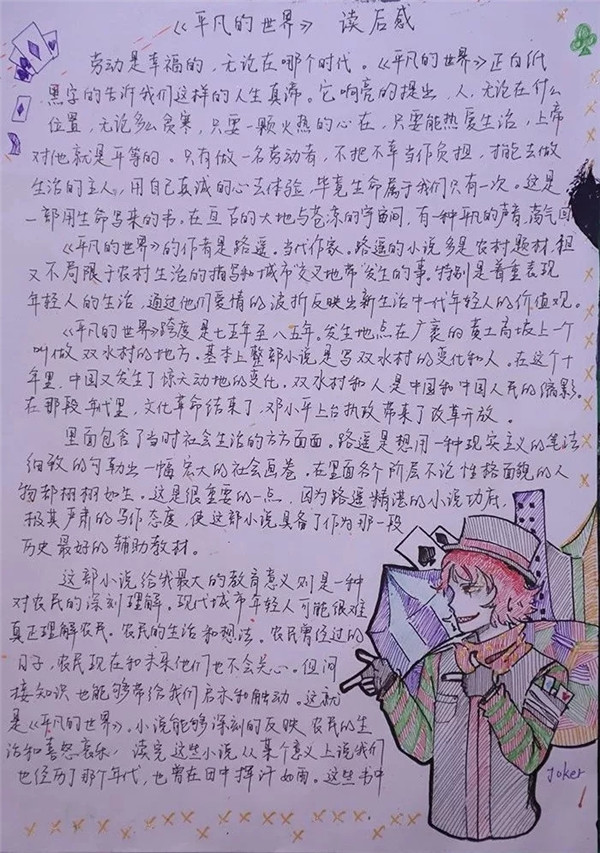 《平凡的世界》 读后感
劳动是幸福的,无论在哪个时代。《平凡的世界》正白纸
黑字的告诉我们这样的人生真谛。它响亮的提出,人,无论在什么
位置,无论多么贫寒,只要一颗火热的心在,只要能热爱生活,上帝
对他就是平等的。只有做一名劳动者,不把不幸当作负担,才能去做
生活的主人,用自己真诚的心去体验,毕竟生命属于我们只有一次。这是
一部用生命写来的书,在亘古的大地与苍凉的宇宙间,有一种平凡的声音,荡气回
《平凡的世界》的作者是路遥。当代作家。路遥的小说多是农村题材,但
又不局限于农村生活的描写和城市交叉地带发生的事。特别是着重表现
年轻人的生活,通过他们爱情的波折反映出新生活中一代年轻人的价值观。
《平凡的世界》跨度是七五年至八五年。发生地点在广袤的黄土高坡上一个
叫做双水村的地方。基本上整部小说是写双水村的变化和人。在这个十
年里,中国又发生了惊天动地的变化。双水村和人是中国和中国人民的缩影。
在那段年代里,文化革命结束了,邓小平上台执政带来了改革开放。
里面包含了当时社会生活的方方面面。路遥是想用一种现实主义的笔法
细致的勾勒出一幅宏大的社会画卷。在里面各个阶层不论性格面貌的人
物都栩栩如生。这是很重要的一点,因为路遥精湛的小说功底,
极其严肃的写作态度,使这部小说具备了作为那一段
历史最好的辅助教材。
这部小说给我最大的教育意义则是一种
对农民的深刻理解。现代城市年轻人可能很难
真正理解农民。农民的生活和想法。农民曾经过的
日子,农民现在和未来他们也不会关心。但间
接知识也能够带给我们启示和触动。这就
是《平凡的世界》。小说能够深刻的反映农民的生
活和喜怒哀乐,读完这些小说从某个意义上说我们
也经历了那个年代,也曾在田中挥汗如雨。这些书中
Joker